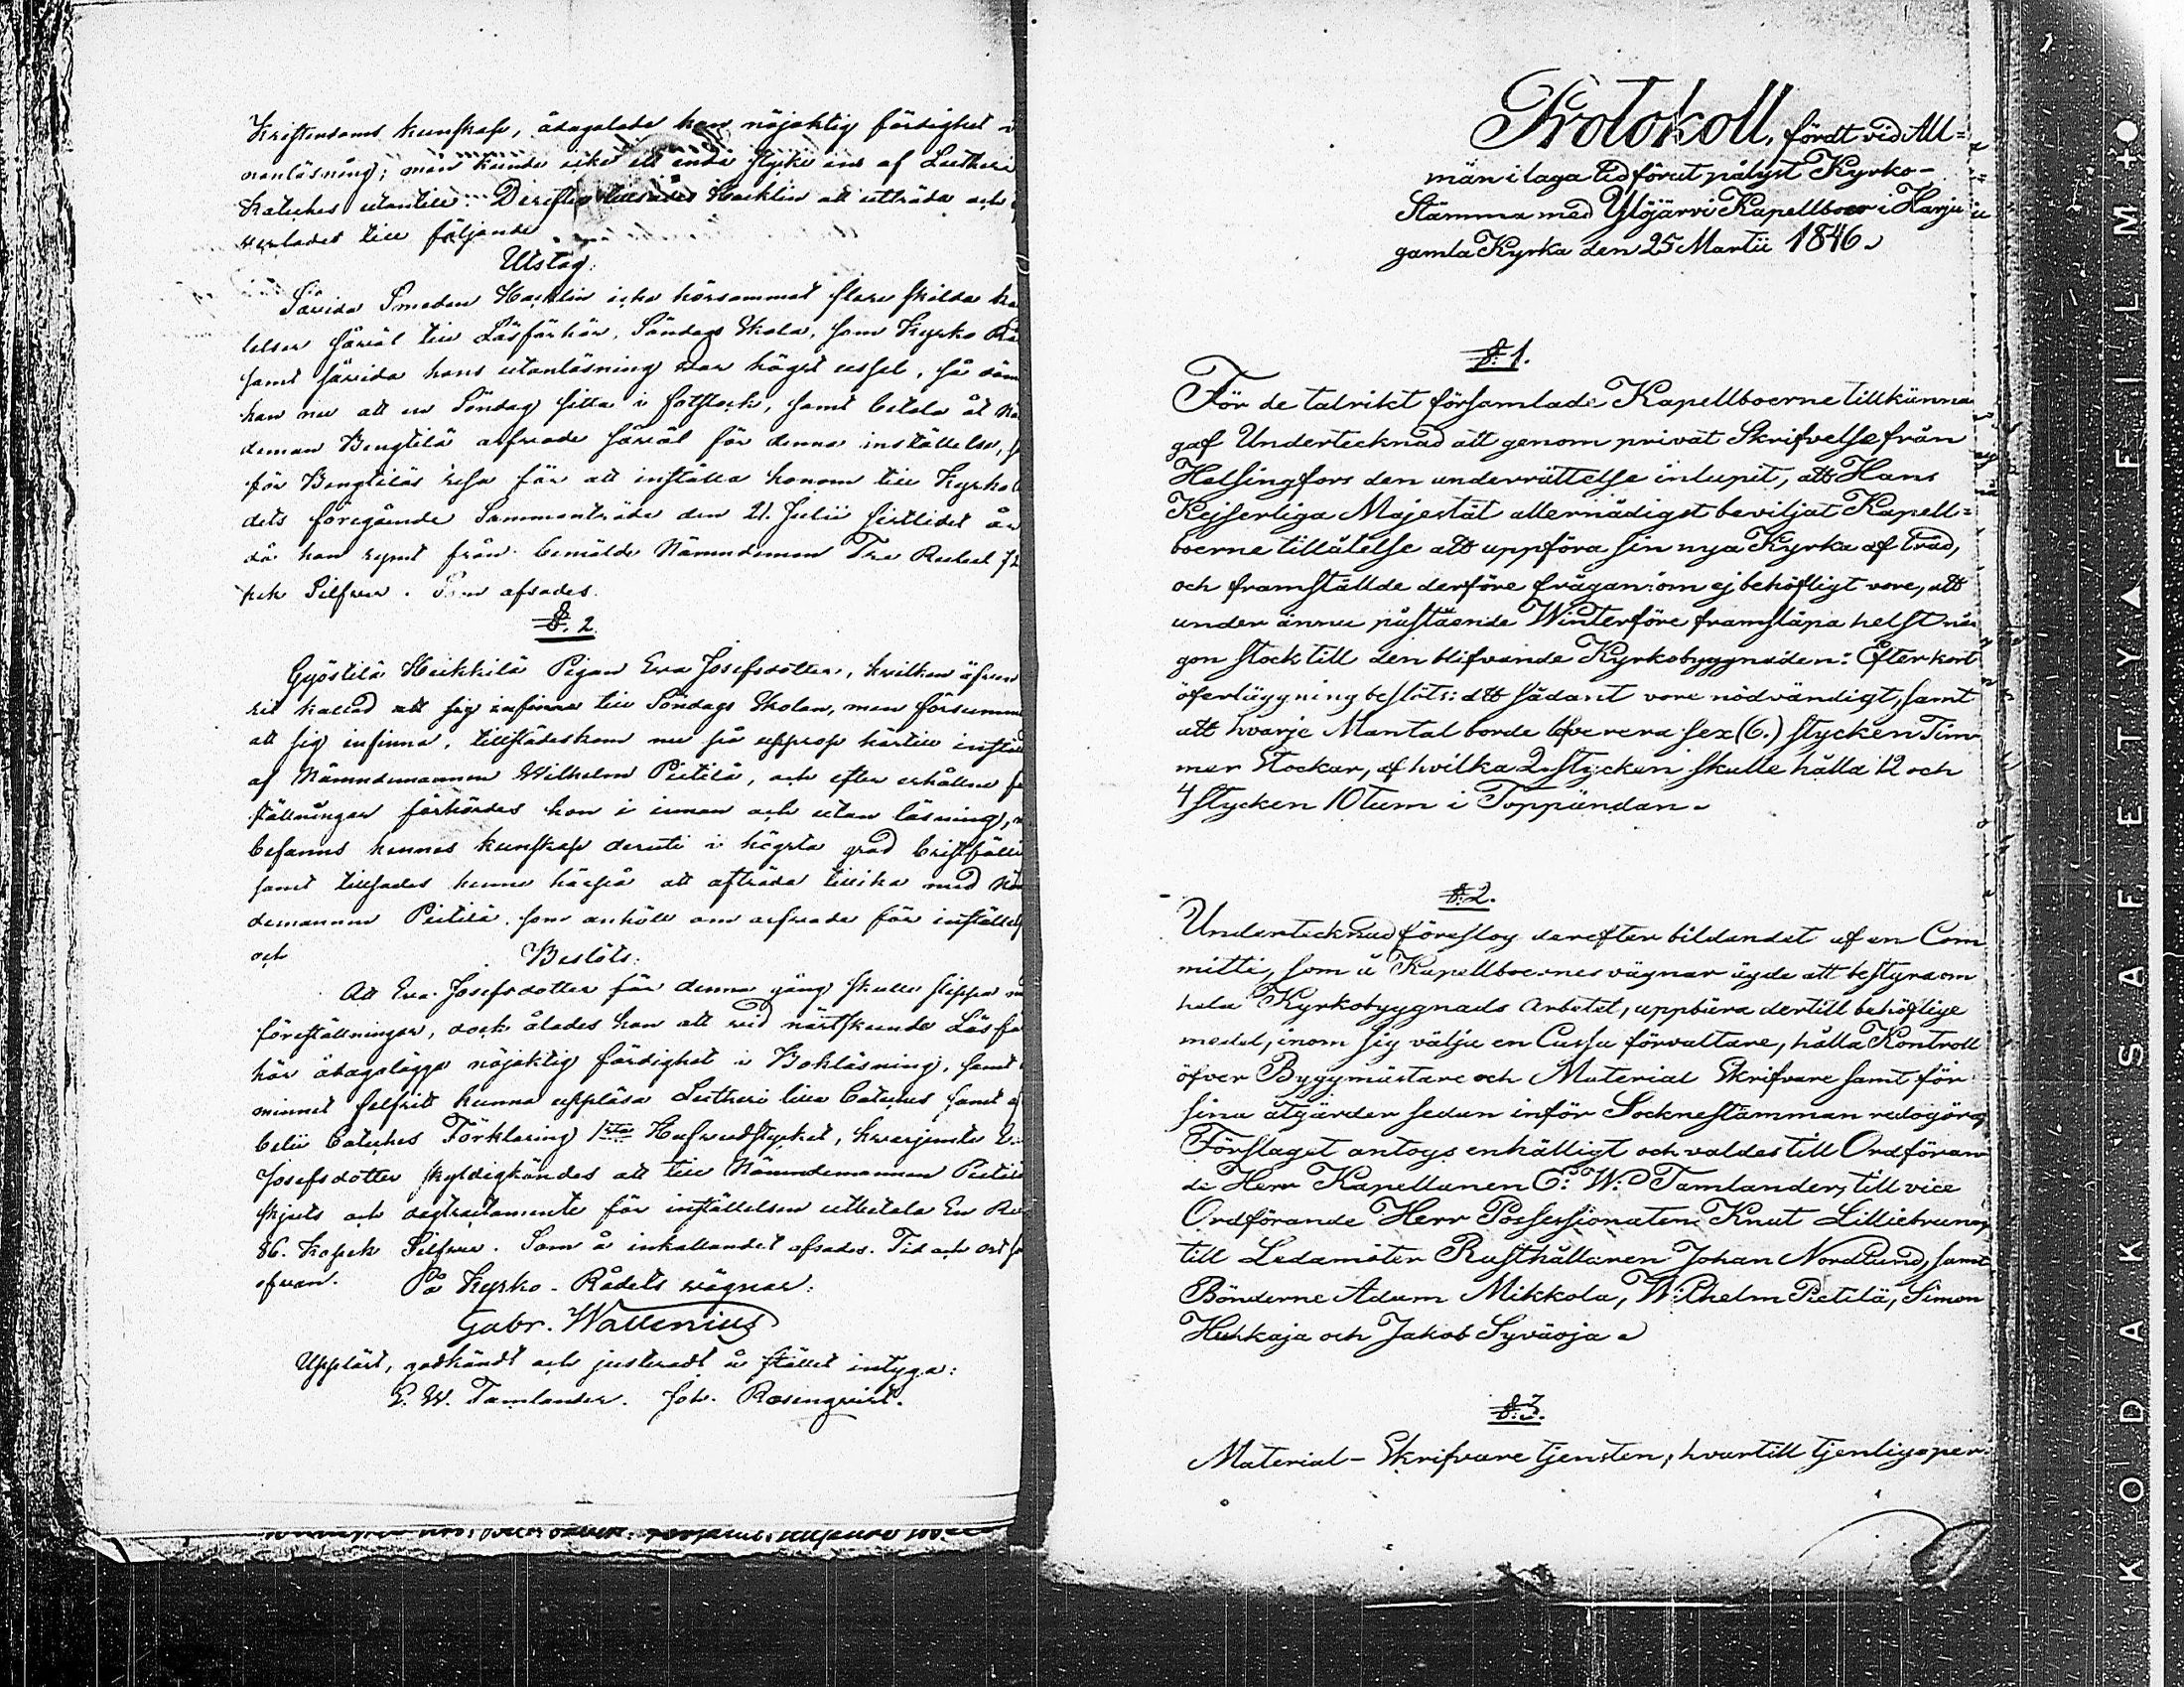 Kristendoms kunskap, ådagalade han nöjaktig färdighet i
nanläsning; men kunde icke ett enda stycke ens af Lutheri
Katekes utantill. Derefter tillsades Hacklin att utträda och
till följande
Utslag:
Såvida Smeden Hacklin icke hörsammat flere skilda ka
lelser såväl till Läsförhör, Söndags Skola, som Kyrko Rå
samt såvida hans utanläsning var högst ussel, så döm
han nu att en Söndag sitta i fotstock, samt betala åt Nä
deman Bengtilä arfvode såväl för denna inställelse, s
för Bengtiläs resa för att inställa honom till Kyrko
dets föregående Sammanträde den 21. Julii sistlidet år
då han rymt från bemälde Nämndeman Tre Rubel 72
kpk Silfver. Som afsades.
§. 2.
Gyöstilä Heikkilä Pigan Eva Josefsdotter, hvilken äfven
rit kallad att sig infinna till Söndags Skolan, men försumm
att sig infinna, tillstädeskom nu på upprop härtill instäl
af Nämndemannen Wilhelm Pietilä, och efter erhållne fö
ställningar förhördes hon i innan och utan läsning,
befanns hennes kunskap deruti i högsta grad bristfälli
samt tillsades henne härpå att afträda tillika med Nä
demannen Pietilä, som anhöll om arfvode för inställel
och Beslöts:
Att Eva Josefsdotter för denna gång skulle slippa m
föreställningar, dock ålades hon att vid nästkunde Läsfö
hör ådagalägga nöjaktig färdighet i Bokläsning, samt
minnet felfritt kunna uppläsa Lutheri lilla Cateches samt
belii Cateches Förklaring 1sta Hufvudstycket, hvarjemte E
Josefsdotter skyldigkändes att till Nämndemannen Pietilä
skjuts och dagtraktamente för inställelsen utbetala En Ru
86. Kopek Silfver. Som å inkallandet afsades. Tid och ort s
ofvan. På Kyrko-Rådets vägnar:
Gabr. Wallenius
Uppläst, godkändt och justeradt å stället intyga:
E. W. Tamlander. Joh. Rosenqvist.
Protokoll, fördt vid All=
män i laga tid förut pålyst Kyrko-
Stämma med Ylöjärvi Kapellboer i Harju
gamla Kyrka den 25 Martii 1846.
§. 1.
För de talrikt församlade Kapellboerne tillkänna
gaf Undertecknad att genom privat Skrifvelse från
Helsingfors den underrättelse inlupit, att Hans
Kejserliga Majestät allernådigst beviljat Kapell=
boerne tillåtelse att uppföra sin nya Kyrka af träd,
och framställde derföre frågan: om ej behöfligt vore, att
under ännu påstående Winterföre framsläpa helst nå
gon stock till den blifvande Kyrkobyggnaden: Efter kort
öfverläggning beslöts: att sådant vore nödvändigt, samt
att hvarje Mantal borde leverera sex (6.) stycken Tim
mer Stockar, af hvilka 2 stycken skulle hålla 12 och
4 stycken 10 tum i Toppändan.
§. 2.
Undertecknad föreslog derefter bildandet af en Com
mitti, som å Kapellboernes vägnar ägde att bestyra om
hela Kyrkobyggnads Arbetet, uppbära dertill behöflige
medel, inom sig välja en Cassa förvaltare, hålla Kontroll
öfver Byggmästare och Material Skrifvare samt för
sina åtgärder sedan inför Socknestämman redogöra,
Förslaget antogs enhälligt och valdes till Ordföran
de Herr Kapellanen E. W. Tamlander, till vice
Ordförande Herr Possessionaten Knut Lilliebrunn,
till Ledamöter Rusthållaren Johan Nordlund, samt
Bönderne Adam Mikkola, Wilhelm Pietilä, Simon
Huhkaja och Jakob Syväoja.
§. 3.
Material-Skrifvare tjensten, hvartill tjenlig per=
KODAK SAFETY FILM